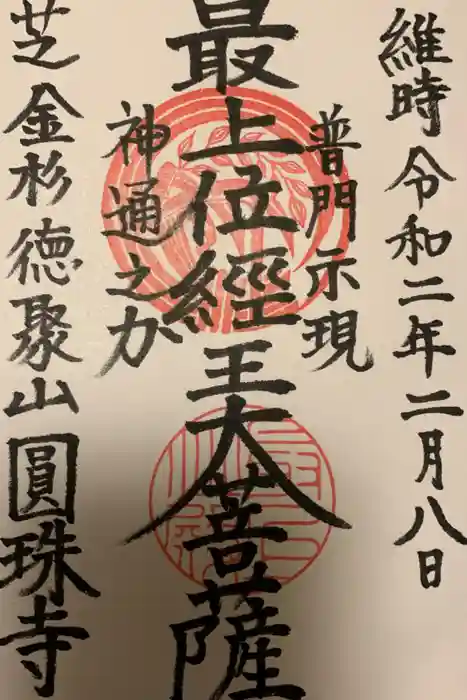 維時令和二年二月八日
普門示現
最上位經王大菩薩
神通之力
芝金杉德聚山圓珠寺